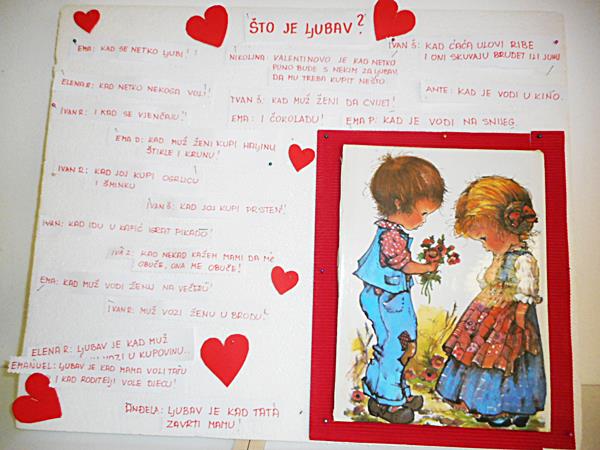 ŠTO JE LJUBAV?
EMA: KAD SE NETKO LJUBI!
ELENA R: KAD NETKO NEKOGA VOLI!
IVAN R: I KAD SE VJENČAJU!
EMA D: KAD MUŽ ŽENI KUPI HALJINU,
ŠTIKLE I KRUNU!
IVAN R: KAD JOJ KUPI OGRLICU
I ŠMINKU
IVAN Š: KAD JOJ KUPI PRSTEN!
IVAN: KAD IDU U KAFIĆ IGRAT PIKADO!
KAD NEKAD KAŽEM MAMI DA ME
OBUČE, ONA ME OBUČE!
EMA: KAD MUŽ VODI ŽENU NA VEČERU!
IVAN R: MUŽ VOZI ŽENU U BRODU!
ELENA R: LJUBAV JE KAD MUŽ
U KUPOVINU..
EMANUEL: LJUBAV JE KAD MAMA VOLI TATU
I KAD RODITELJI VOLE DJECU!
ANĐELA: LJUBAV JE KAD TATA
ZAVRTI MAMU!
NIKOLINA: VALENTINOVO JE KAD NETKO
PUNO BUDE S NEKIM ZA LJUBAV,
DA MU TREBA KUPIT NEŠTO.
IVAN Š: KAD MUŽ ŽENI DA CVIJET!
EMA: I ČOKOLADU!
IVAN Š: KAD ĆAĆA ULOVI RIBE
I ONI SKUVAJU BRUDET ILI JUHU
ANTE: KAD JE VODI U KINO.
EMA P: KAD JE VODI NA SNIJEG.